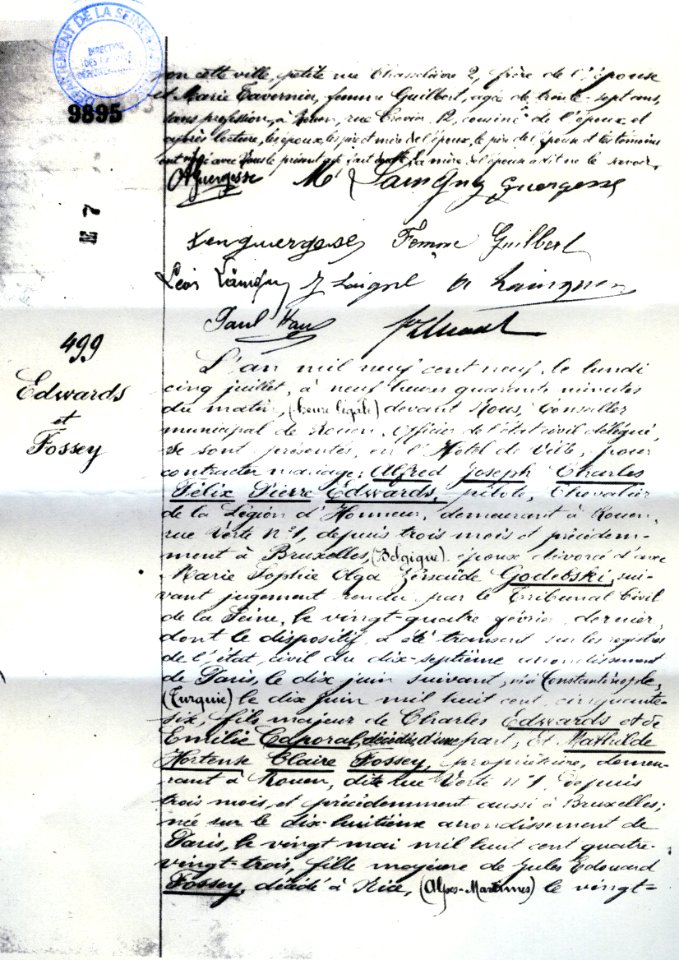 DEPARTEMENT DE LA SEINE
DIRECTION
9895
en cette ville, petite rue 2, frère de l'épouse
et Marie Tavernier, femme Guilbert, agée de trente-sept ans,
sans profession, à Rouen, rue 12, cousine de l'époux, et
après lecture, les époux, les père et mère de l'époux, le père de l'épouse et les témoins
ont signé avec Nous le présent acte, la mère de l'épouse a dit ne le savoir.
Guergesse Guergesse
Femme Guilbert
Léon
Paul
7
499
Edwards
et
Fossey
L'an mil neuf cent neuf, le lundi
cinq juillet, à neuf heures quarante minutes
du matin, (heure légale) devant Nous, Conseiller
municipal de Rouen, Officier de l'état civil délégué,
se sont présentés, en l'Hôtel de Ville, pour
contracter mariage: Alfred Joseph Charles
Félix Pierre Edwards, pilote, Chevalier
de la Légion d'Honneur, demeurant à Rouen,
rue Verte N°1, depuis trois mois et précédem-
ment à Bruxelles, (Belgique) époux divorcé d'avec
Marie Sophie Olga Zénaïde Godebski, sui-
vant jugement rendu par le Tribunal Civil
de la Seine, le vingt-quatre février dernier,
dont le dispositif a été transcrit sur les registres
de l'état civil du dix-septième arrondissement
de Paris, le dix juin suivant, né à Constantinople,
(Turquie) le dix juin mil huit cent cinquante-
six, fils majeur de Charles Edwards et de
Emilie Caporal, décédés, d'une part, Et Mathilde
Hortense Claire Fossey, propriétaire, demeu-
rant à Rouen, dite rue Verte N°1, depuis
trois mois, et précédemment aussi à Bruxelles;
née sur le dix-huitième arrondissement de
Paris, le vingt mai mil huit cent quatre-
vingt-trois, fille majeure de Jules Edouard
Fossey, décédé à Nice, (Alpes-Maritimes) le vingt-